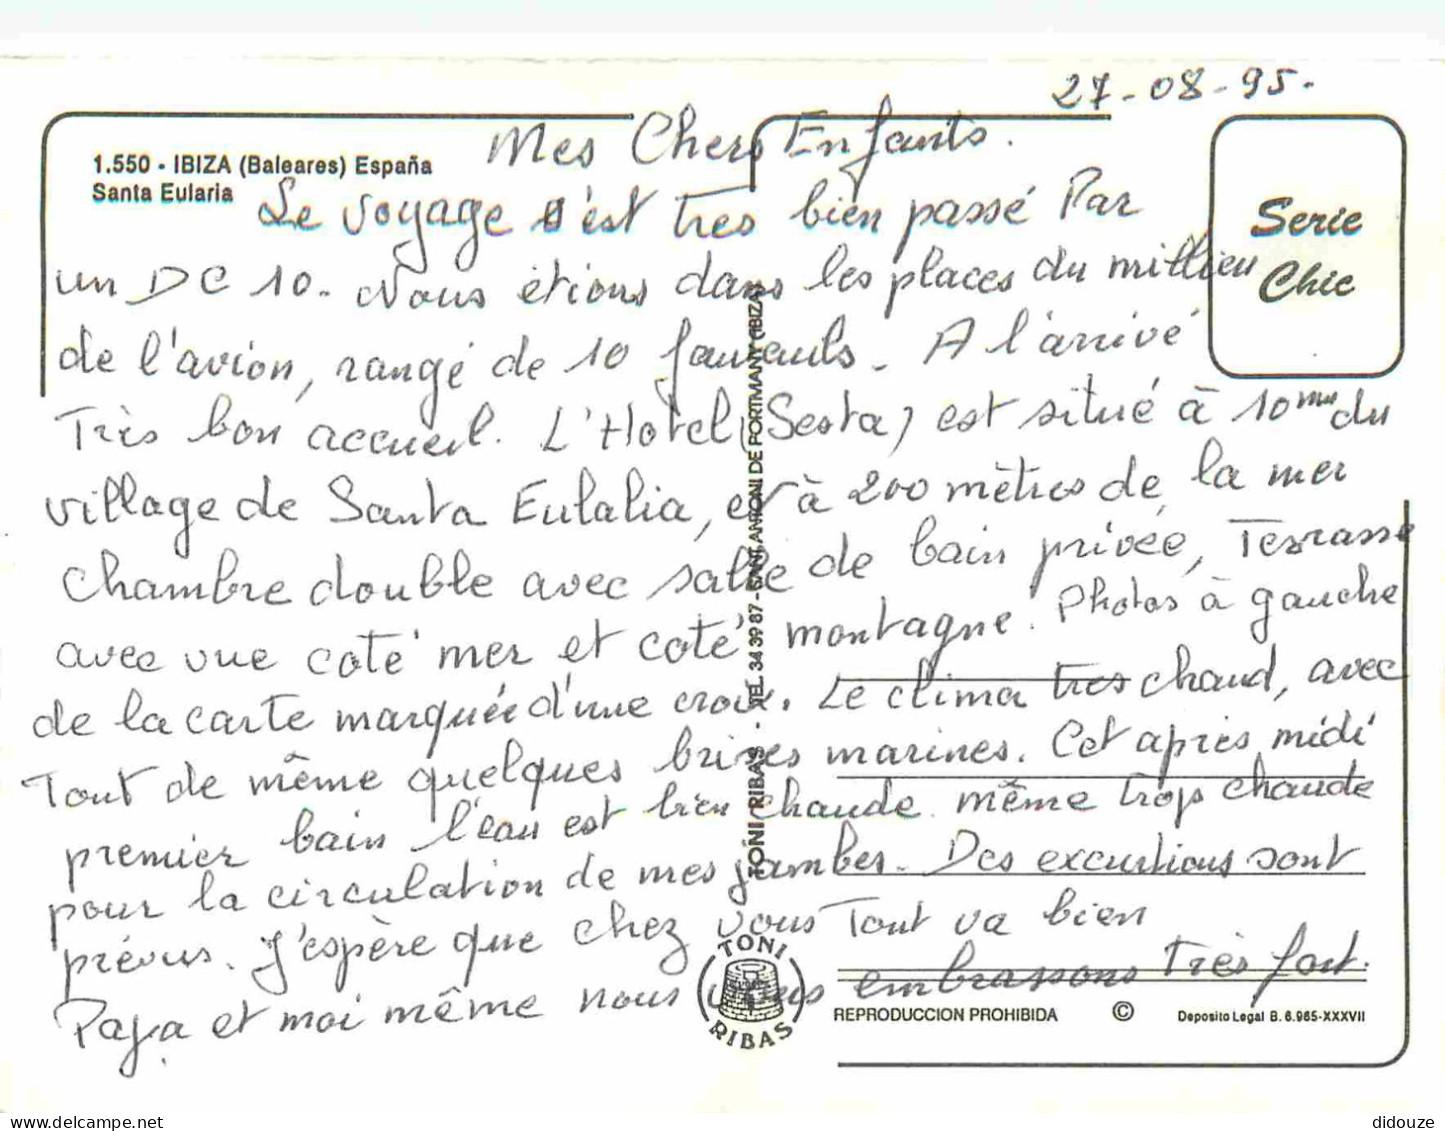 27-08-95.
1.550 - IBIZA (Baleares) España
Santa Eularia
Serie
Chic
Mes Chers Enfants.
Le voyage s'est tres bien passé Par
un DC 10. Nous étions dans les places du millieu
de l'avion, rangé de 10 fauteuils. A l'arrivé
Très bon accueil. L'Hotel (Sesta) est situé à 10 mn du
village de Santa Eulalia, et à 200 mètres de la mer
Chambre double avec salle de bain privée, Terrasse
avec vue coté mer et coté montagne. Photos à gauche
de la carte marquée d'une croix. Le climat tres chaud, avec
Tout de même quelques brises marines. Cet après midi
premier bain l'eau est bien chaude même trop chaude
pour la circulation de mes jambes. Des excurtions sont
prévus. J'espère que chez vous Tout va bien
Papa et moi même nous vous embrassons Très fort.
TONI RIBAS - TEL. 34 39 87 - SANT ANTONI DE PORTMANY (IBIZA)
TONI
RIBAS
REPRODUCCION PROHIBIDA © Deposito Legal B. 6.965-XXXVII
didouze